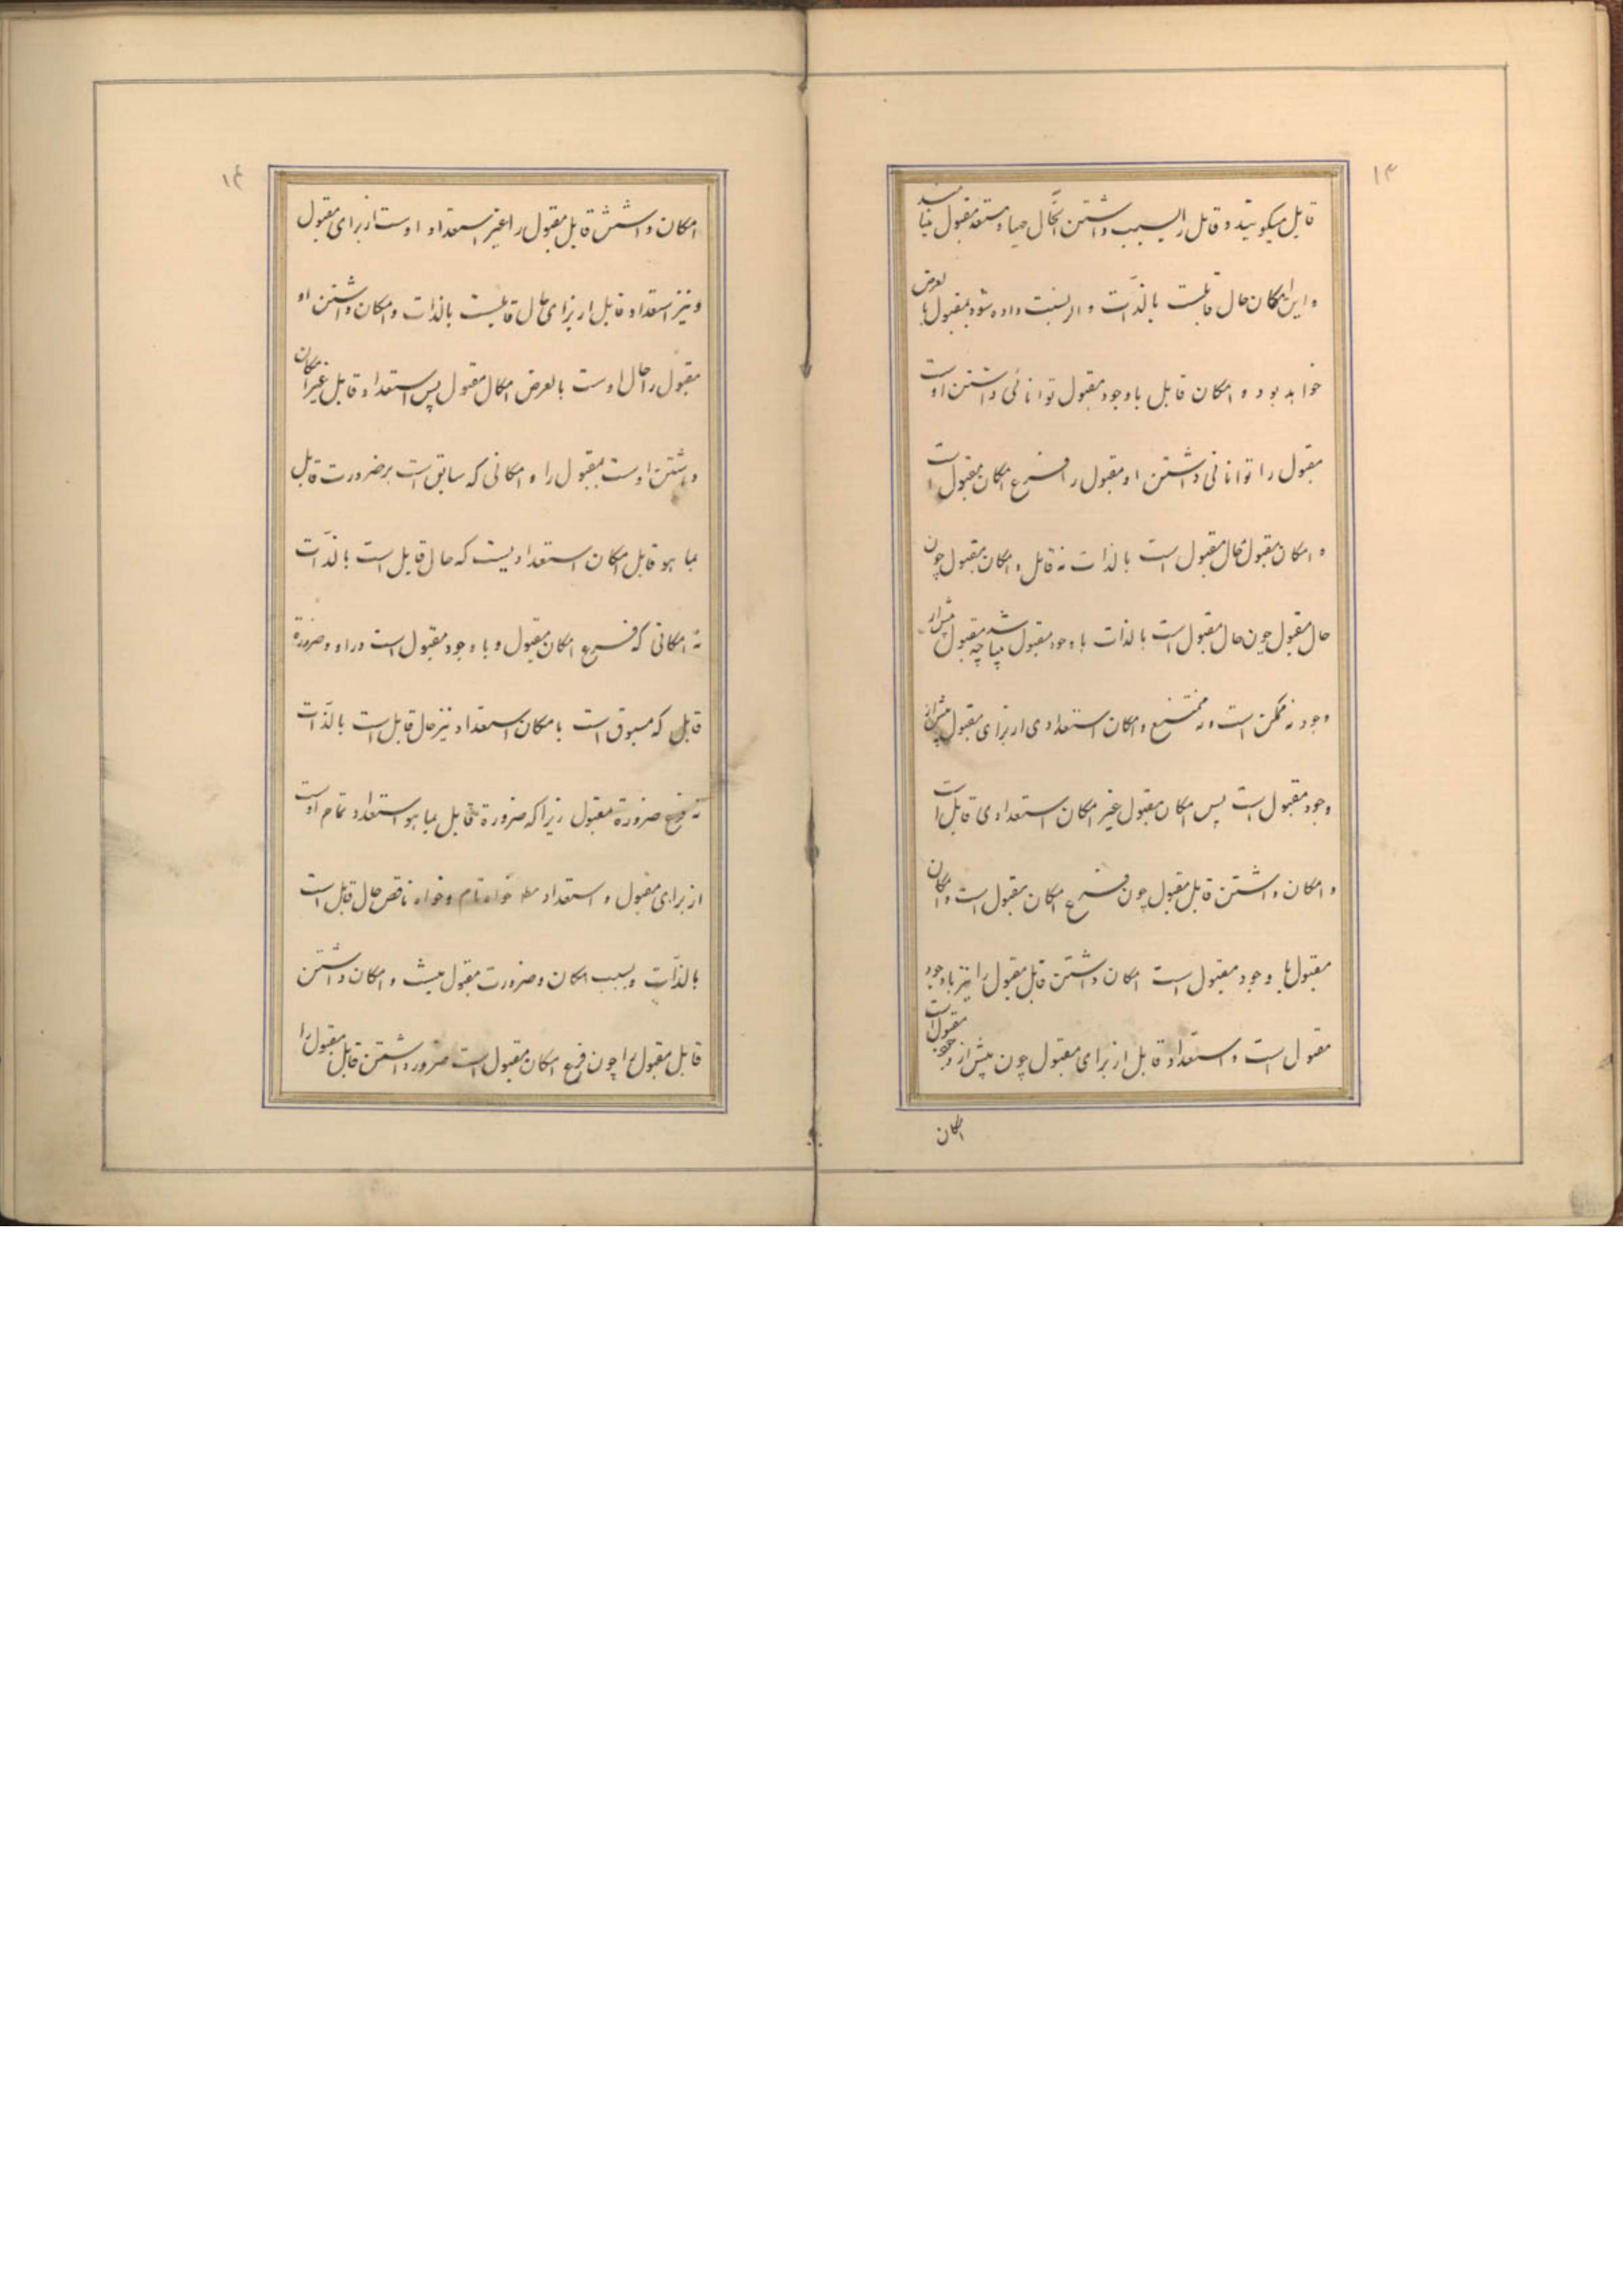 ۱۳
قابل میگویند و قابل را بسبب داشتن آنحال مهیا و مستعد مقبول مینامند
و این امکان حال قابلست بالذّات و اگر نسبت داده شود بمقبول بالعرض
خواهد بود و امکان قابل با وجود مقبول توانائی داشتن اوست
مقبول را توانائی داشتن او مقبول را فرع امکان مقبول است
و امکان مقبول حال مقبول است بالذات نه قابل و امکان مقبول چون
حال مقبول چون حال مقبول است بالذات با وجود مقبول میباشد چه مقبول پیش از
وجود نه ممکن است و نه ممتنع و امکان استعدادی از برای مقبول پیش از
وجود مقبول است پس امکان مقبول غیر امکان استعدادی قابل است
و امکان داشتن قابل مقبول چون فرع امکان مقبول است و امکان
مقبول با وجود مقبول است امکان داشتن قابل مقبول را نیز با وجود
مقبول است و استعداد قابل از برای مقبول چون پیش از وجود مقبول است
امکان
۱۴
امکان داشتن قابل مقبول را غیر استعداد اوست از برای مقبول
و نیز استعداد قابل از برای حال قابلیست بالذات و امکان داشتن او
مقبول را حال اوست بالعرض امکال مقبول پس استعداد قابل غیر امکان
داشتن اوست مقبول را و امکانی که سابق است بر ضرورت قابل
بما هو قابل امکان استعدادیست که حال قابل است بالذّات
نه امکانی که فرع امکان مقبول و با وجود مقبول است در او و ضرورة
قابل که مسبوق است بامکان استعداد نیز حال قابل است بالذّات
نه فرع ضرورة مقبول زیرا که ضرورة قابل بما هو استعداد تمام اوست
از برای مقبول و استعداد خواه تام و خواه ناقص حال قابل است
بالذّات و بسبب امکان و ضرورت مقبول نیست و امکان داشتن
قابل مقبول را چون فرع امکان مقبول است ضرور داشتن قابل مقبول را